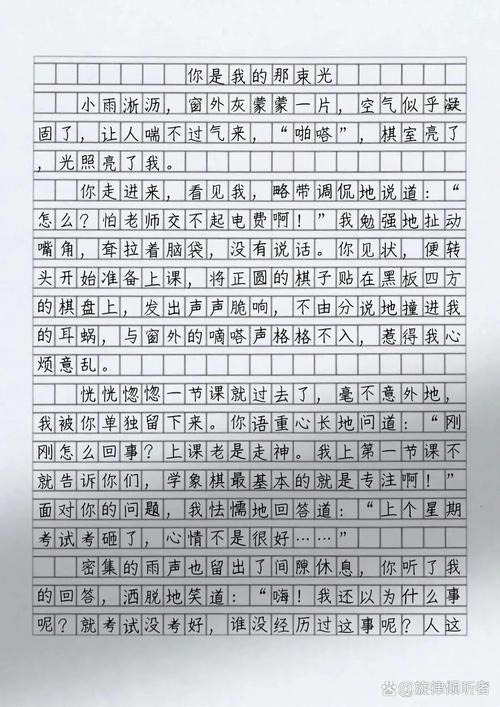 你是我的那束光
小雨淅沥，窗外灰蒙蒙一片，空气似乎凝
固了，让人喘不过气来，“啪嗒”，棋室亮了
，光照亮了我。
你走进来，看见我，略带调侃地说道：“
怎么？怕老师交不起电费啊！”我勉强地扯动
嘴角，耷拉着脑袋，没有说话。你见状，便转
头开始准备上课，将正圆的棋子贴在黑板四方
的棋盘上，发出声声脆响，不由分说地撞进我
的耳蜗，与窗外的嘀嗒声格格不入，惹得我心
烦意乱。
恍恍惚惚一节课就过去了，毫不意外地，
我被你单独留下来。你语重心长地问道：“刚
刚怎么回事？上课老是走神。我上第一节课不
就告诉你们，学象棋最基本的就是专注啊！”
面对你的问题，我怯懦地回答道：“上个星期
考试考砸了，心情不是很好……”
密集的雨声也留出了间隙休息，你听了我
的回答，洒脱地笑道：“嗨！我还以为什么事
呢？就考试没考好，谁没经历过这事呢？人这
@旋律倾听者